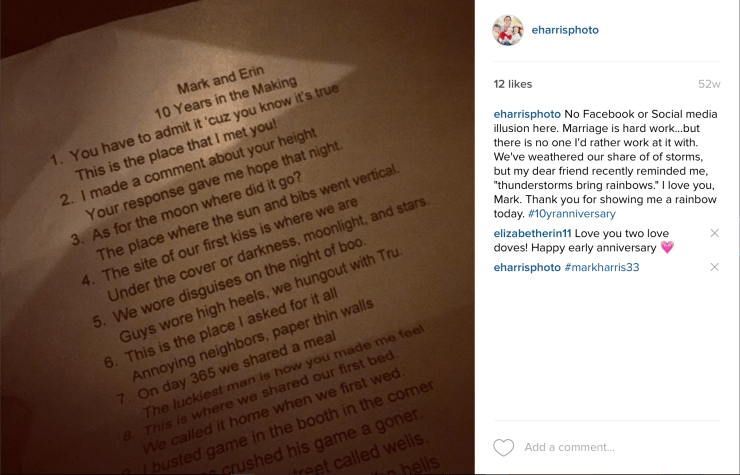 Mark and Erin
10 Years in the Making
1. You have to admit it 'cuz you know it's true
This is the place that I met you!
2. I made a comment about your height
Your response gave me hope that night.
3. As for the moon where did it go?
The place where the sun and bibs went vertical.
4. The site of our first kiss is where we are
Under the cover or darkness, moonlight, and stars.
5. We wore disguises on the night of boo.
Guys wore high heels, we hungout with Tru.
6. This is the place I asked for it all
Annoying neighbors, paper thin walls
7. On day 365 we shared a meal
The luckiest man is how you made me feel
8. This is where we shared our first bed.
We called it home when we first wed.
9. I busted game in the booth in the corner
crushed his game a goner.
street called wells.
hells
eharrisphoto
12 likes
52w
eharrisphoto No Facebook or Social media
illusion here. Marriage is hard work...but
there is no one I'd rather work at it with.
We've weathered our share of of storms,
but my dear friend recently reminded me,
"thunderstorms bring rainbows." I love you,
Mark. Thank you for showing me a rainbow
today. #10yranniversary
elizabetherin11 Love you two love
doves! Happy early anniversary 💗
eharrisphoto #markharris33
Add a comment...